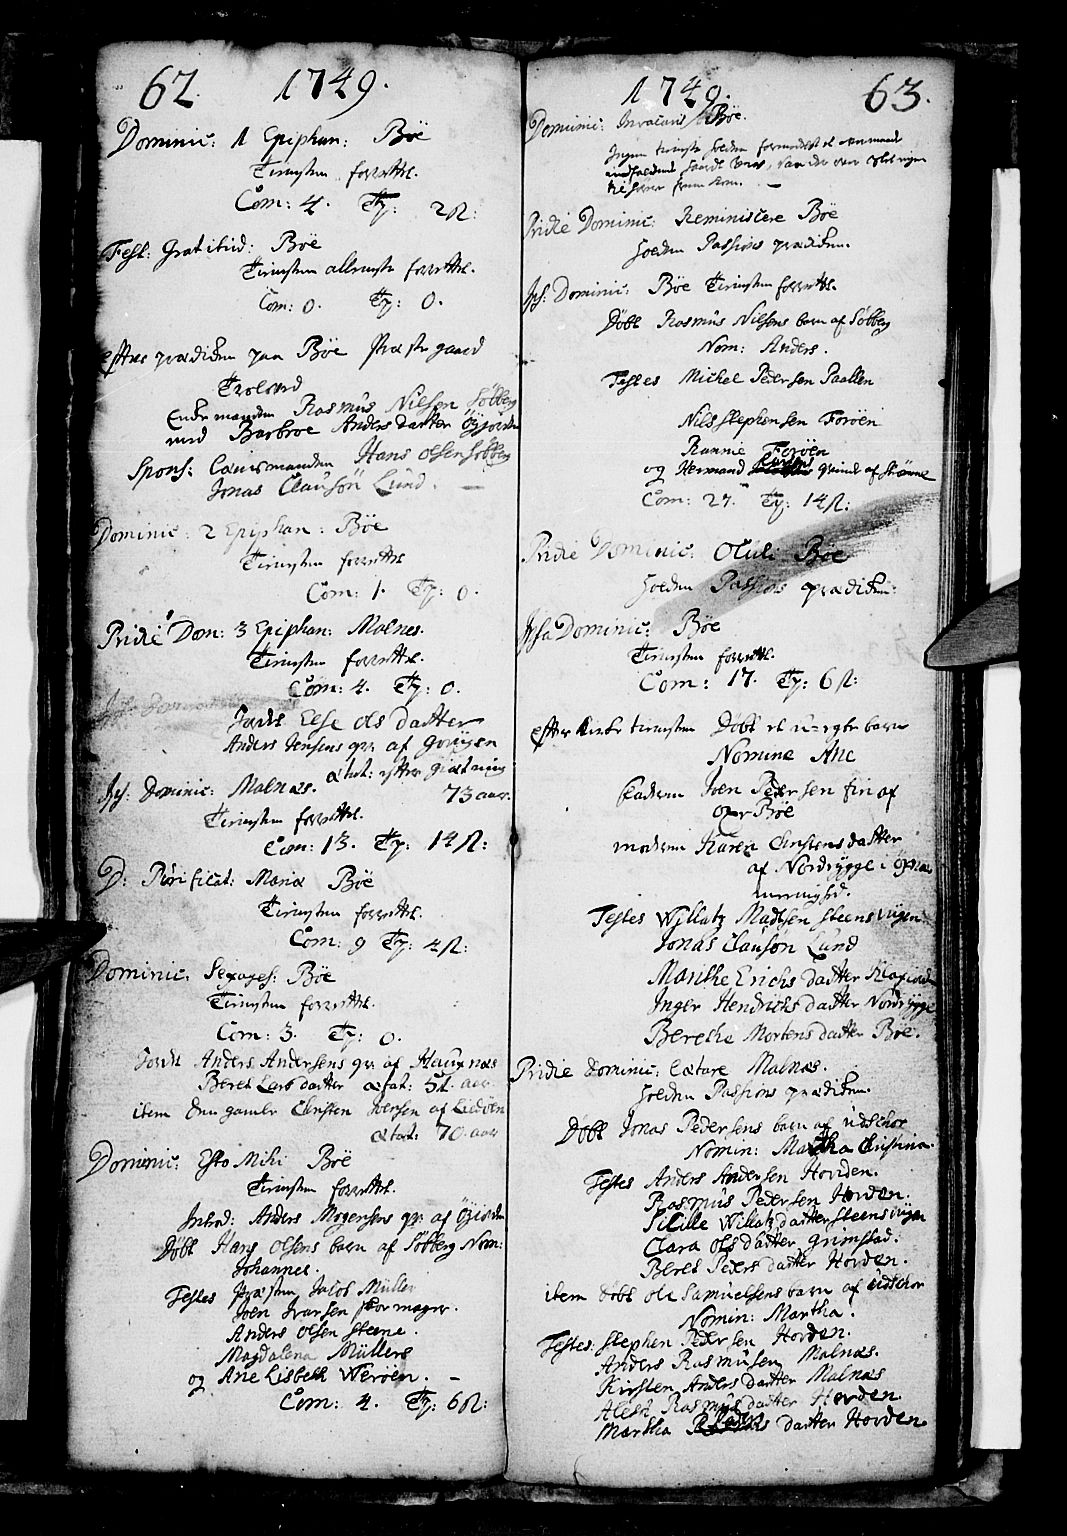 62. 1749.
Dominic: 1 Epiphan: Bøe
Tienesten forrettet.
Com: 4. Ty: 2 β:
Fest: Gratitud: Bøe
Tienesten allene forrettet.
Com: 0. Ty: 0.
Efter prædiken paa Bøe Præstegaard
Trolovet
Enkemanden Rasmus Nilsen Søbberg
med Barbroe Anders datter Øjorden
Spons: Hans Olsen Søbberg
Jonas Clausøn Lund.
Dominic: 2 Epiphan: Bøe
Tienesten forrettet
Com: 1. Ty: 0.
Pridie Dom: 3 Epiphan: Malnes.
Tienesten forrettet.
Com: 4. Ty: 0.
Jordet Else Ols datter
Anders Jensens qv: af
ætat: efter giætning
73 aar.
Ips: Dominic: Malnæs.
Tienesten forrettet.
Com: 13. Ty: 14 β:
D: Purificat: Mariæ Bøe
Tienesten forrettet.
Com: 9 Ty: 4 β:
Dominic: Sexages: Bøe
Tienesten forrettet.
Com: 3. Ty: 0.
Jordet Anders Andersens qv: af Haugnæs
Beret Lars datter ætat: 52. aar
item den gamle Christen Iversen af Lidøen
ætat: 70. aar
Dominic: Esto Mihi Bøe
Tienesten forrettet.
Introd: Anders Mogensens qv: af
Døbt Hans Olsens barn af Søbberg Nom:
Johannes.
Testes Præsten Jacob Müller
Joen Ivarsen
Anders Olsen Steene.
Magdalena Müllers
og Ane Lisbeth Werøen. –
Com: 4. Ty: 6 β:
1749. 63.
Dominic: Invocavit Bøe.
Ingen tieneste holden formedelst et
Pridie Dominic: Reminiscere Bøe
holden Passions prædiken.
Ips: Dominic: Bøe Tienesten forrettet.
Døbt Rasmus Nilsens barn af Søbberg
Nom: Anders.
Testes Michel Pedersen Paallen
Nils Stephensen Forøen
Rannie Forøen
og
Com: 27. Ty: 14 β:
Pridie Dominic: Oculi Bøe
holden Passions prædiken:
Ipsa Dominic: Bøe
Tienesten forrettet.
Com: 17. Ty: 6 β:
efter tienesten Døbt et u-egte barn
Nomine Ane
Faderen Joen Pedersen fin af
over Bøe
moderen Karen Christens datter
af Nordrygge i
menighed.
Testes Willatz Madtsen Steensvigen
Jonas Clausøn Lund
Marithe Erichs datter
Inger Hendrichs datter Nordrygge
Berethe Mortens datter Bøe.
Pridie Dominic: Lætare Malnæs.
holden Passions prædiken.
Døbt Jonas Pedersens barn af Udschor
Nomin: Martha Christina.
Testes Anders Andersen Hovden.
Rasmus Pedersen Hovden.
Sicille Willatz datter Steensvigen
Clara Ols datter Grimstad:
Beret Peders datter Hovden.
item døbt Ole Samuelsens barn af Udschor
Nomin: Martha.
Testes: Stephen Pedersen Hovden.
Anders Rasmusen Malnæs.
Kirsten Anders datter Malnæs
Alest Rasmus datter Hovden
Martha datter Hovden